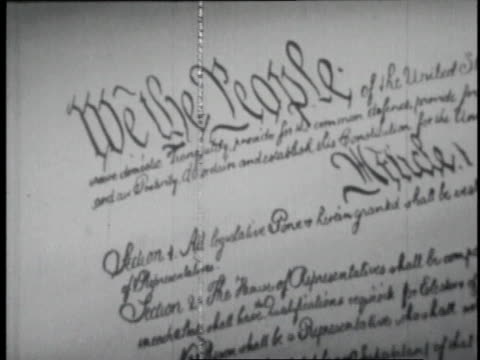 We the People of the United S
insure domestic Tranquility, provide for the common defence, provide for
and our Posterity, do ordain and establish this Constitution for the Uni
Article. I
Section 1. All legislative Powers herein granted shall be vest
of Representatives.
Section 2. The House of Representatives shall be comp
shall have the Qualifications requisite for Electors of
No Person shall be a Representative who shall
Inhabitant of that